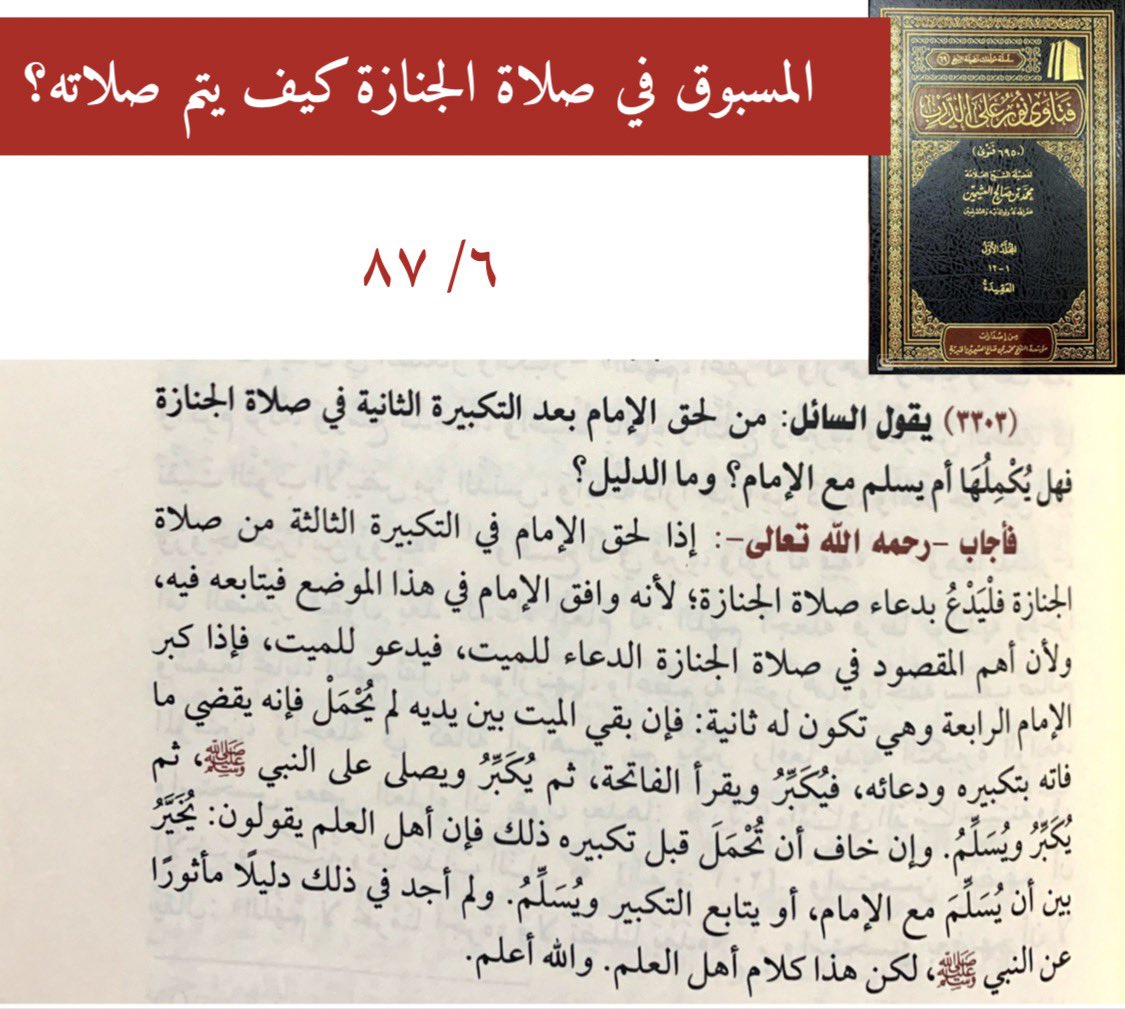 المسبوق في صلاة الجنازة كيف يتم صلاته؟
٦/ ٨٧
سلسلة مؤلفات فضيلة الشيخ (٦٩)
فتاوى نور على الدرب
(٦٩٥٠ فتوى)
لفضيلة الشيخ العلامة
محمد بن صالح العثيمين
غفر الله له ولوالديه وللمسلمين
المجلد الأول
١-١٢
العقيدة
من إصدارات
مؤسسة الشيخ محمد بن صالح العثيمين الخيرية
(٣٣٠٣) يقول السائل: من لحق الإمام بعد التكبيرة الثانية في صلاة الجنازة
فهل يُكْمِلُهَا أم يسلم مع الإمام؟ وما الدليل؟
فأجاب -رحمه الله تعالى-: إذا لحق الإمام في التكبيرة الثالثة من صلاة
الجنازة فلْيَدْعُ بدعاء صلاة الجنازة؛ لأنه وافق الإمام في هذا الموضع فيتابعه فيه،
ولأن أهم المقصود في صلاة الجنازة الدعاء للميت، فيدعو للميت، فإذا كبر
الإمام الرابعة وهي تكون له ثانية: فإن بقي الميت بين يديه لم يُحْمَلْ فإنه يقضي ما
فاته بتكبيره ودعائه، فيُكَبِّرُ ويقرأ الفاتحة، ثم يُكَبِّرُ ويصلى على النبي ﷺ، ثم
يُكَبِّرُ ويُسَلِّمُ. وإن خاف أن تُحْمَلَ قبل تكبيره ذلك فإن أهل العلم يقولون: يُخَيَّرُ
بين أن يُسَلِّمَ مع الإمام، أو يتابع التكبير ويُسَلِّمُ. ولم أجد في ذلك دليلًا مأثورًا
عن النبي ﷺ، لكن هذا كلام أهل العلم. والله أعلم.